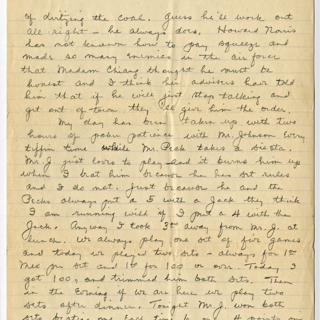 of dirtying the coal. Guess he'll work out
all right - he always does. Howard Norris
has not known how to pay squeeze and
made so many enemies in the air force
that Madam Chiang thought he must be
honest and I think his advisers have told
him that if he will just stop talking and
get out of town they'll give him the order.
My day has been taken up with two
hours of poker patience with Mr. Johnson every
tiffin time while Mr. Peck takes a siesta.
Mr. J just loves to play and it burns him up
when I beat him because he has set rules
and I do not. Just because he and the
Pecks always put a 5 with a Jack they think
I am running wild if I put a 4 with the
Jack. Anyway I took 3 away from Mr. J. at
lunch. We always play one out of five games
and today we played two sets - always for 1st
Mex per set and 1st for 100 or over. Today I
got 100, and trimmed him both sets. Then
in the evening if we are here we play two
sets after dinner. Tonight Mr. J. won both